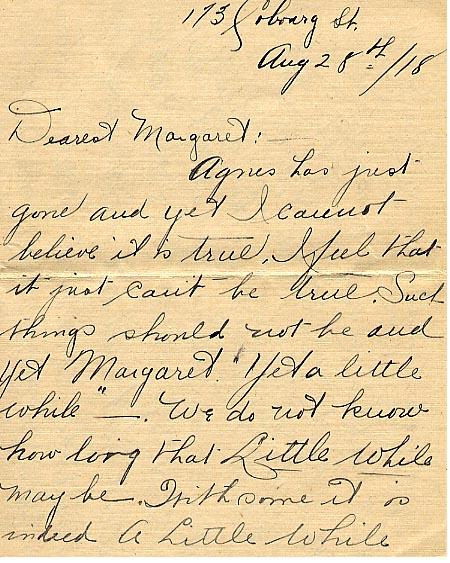 173 Cobourg St.
Aug 28th/18
Dearest Margaret:—
Agnes has just
gone and yet I cannot
believe it is true. I feel that
it just can't be true. Such
things should not be and
yet Margaret. "Yet a little
while" —. We do not know
how long that Little While
may be. With some it is
indeed A Little While